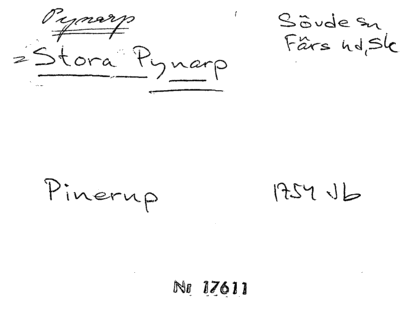 Pynarp
Sövde sn
Färs hd, Sk
= Stora Pynarp
Pinerup
1754 Jb
Nr 17611